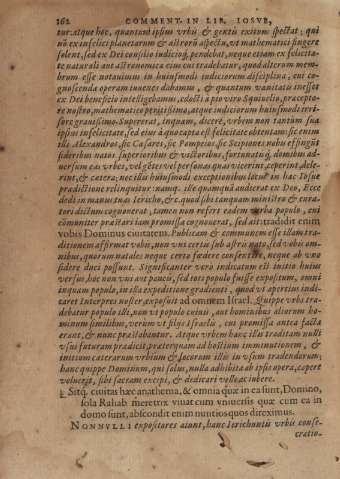 262 COMMENT. IN LIB. IOSVE,
tur. Atque hoc, quantum ipsum vrbis & gentis exitum spectat; qui
nō ex infelici planetarum & astrorū aspectu, vt mathematici fingere
solent, sed ex Dei consilio iudicioq́; pendebat, neque etiam ex felicita-
te naturali aut astronomica eius cui tradebatur, quod alterum mem-
brum esse notauimus in huiusmodi iudiciorum disciplina, cui co-
gnoscenda operam iuuenes dabamus, & quantum vanitatis inesset
ex Dei beneficio intelligebamus, edocti à pio viro Squiuelio, præcepto-
re nostro, mathematico peritissimo, atque iudiciorum huiusmodi irri-
sore grauissimo. Supererat, inquam, dicere, vrbem non tantum sua
ipsius infelicitate, sed eius à quo capta est felicitate obtentam: sic enim
ille Alexandros, sic Cæsares, sic Pompeios, sic Scipiones nobis effingūt
sideribus natos superioribus & victoribus, fortunatíq́; domibus ad-
uersus eas vrbes, vel gētes vel personas quas vicerint, ceperint, dele-
rint, & cetera: nec illis huiusmodi exceptionibus locus in hac Iosue
prædictione relinquitur: namq. ille quamquā audierat ex Deo, Ecce
dedi in manus tuas Iericho, & c. quod sibi tanquam ministro & cura-
tori dictum cognouerat, tamen non refert eadem verba populo, aut
communiter præstari rem promissā cognouerat, sed ait: tradidit enim
vobis Dominus ciuitatem. Publicam & communem esse illam tra-
ditionem affirmat vobis, non vni certis sub astris nato, sed vobis om-
nibus, quorum natales neque certo fœdere consentire, neque ab vno
sidere duci possunt. Significanter vero indicatum est initio huius
versus, hoc non vni aut paucis, sed toti populo fuisse expositum, omni
inquam populo, in illa expeditione gradienti, quod vt apertius indi-
caret Interpres noster, exposuit ad omnem Israel. Quippe vrbs tra-
debatur populo illi, non vt populo cuiuis, aut hominibus aliorum ho-
minum similibus, verùm vt filijs Israelis, cui promissa antea facta
erant, & nunc præstabantur. Atque vrbem hanc illis traditam nulli
vsui futuram prædicit, præterquam ad hostium imminutionem, &
initium caterarum vrbium & locorum illis in vsum tradendorum;
hanc quippe Dominum, qui solus, nulla adhibita ab ipsis opera, cepere
voluerit, sibi sacram excipi, & dedicari velle ac iubere.
Sitq. ciuitas hæc anathema, & omnia quæ in ea sunt, Domino,
sola Rahab meretrix viuat cum vniuersis quæ cum ea in
domo sunt, abscondit enim nuntios quos direximus.
NONNVLLI expositores aiunt, hanc Ierichuntis vrbis conse-
cratio-